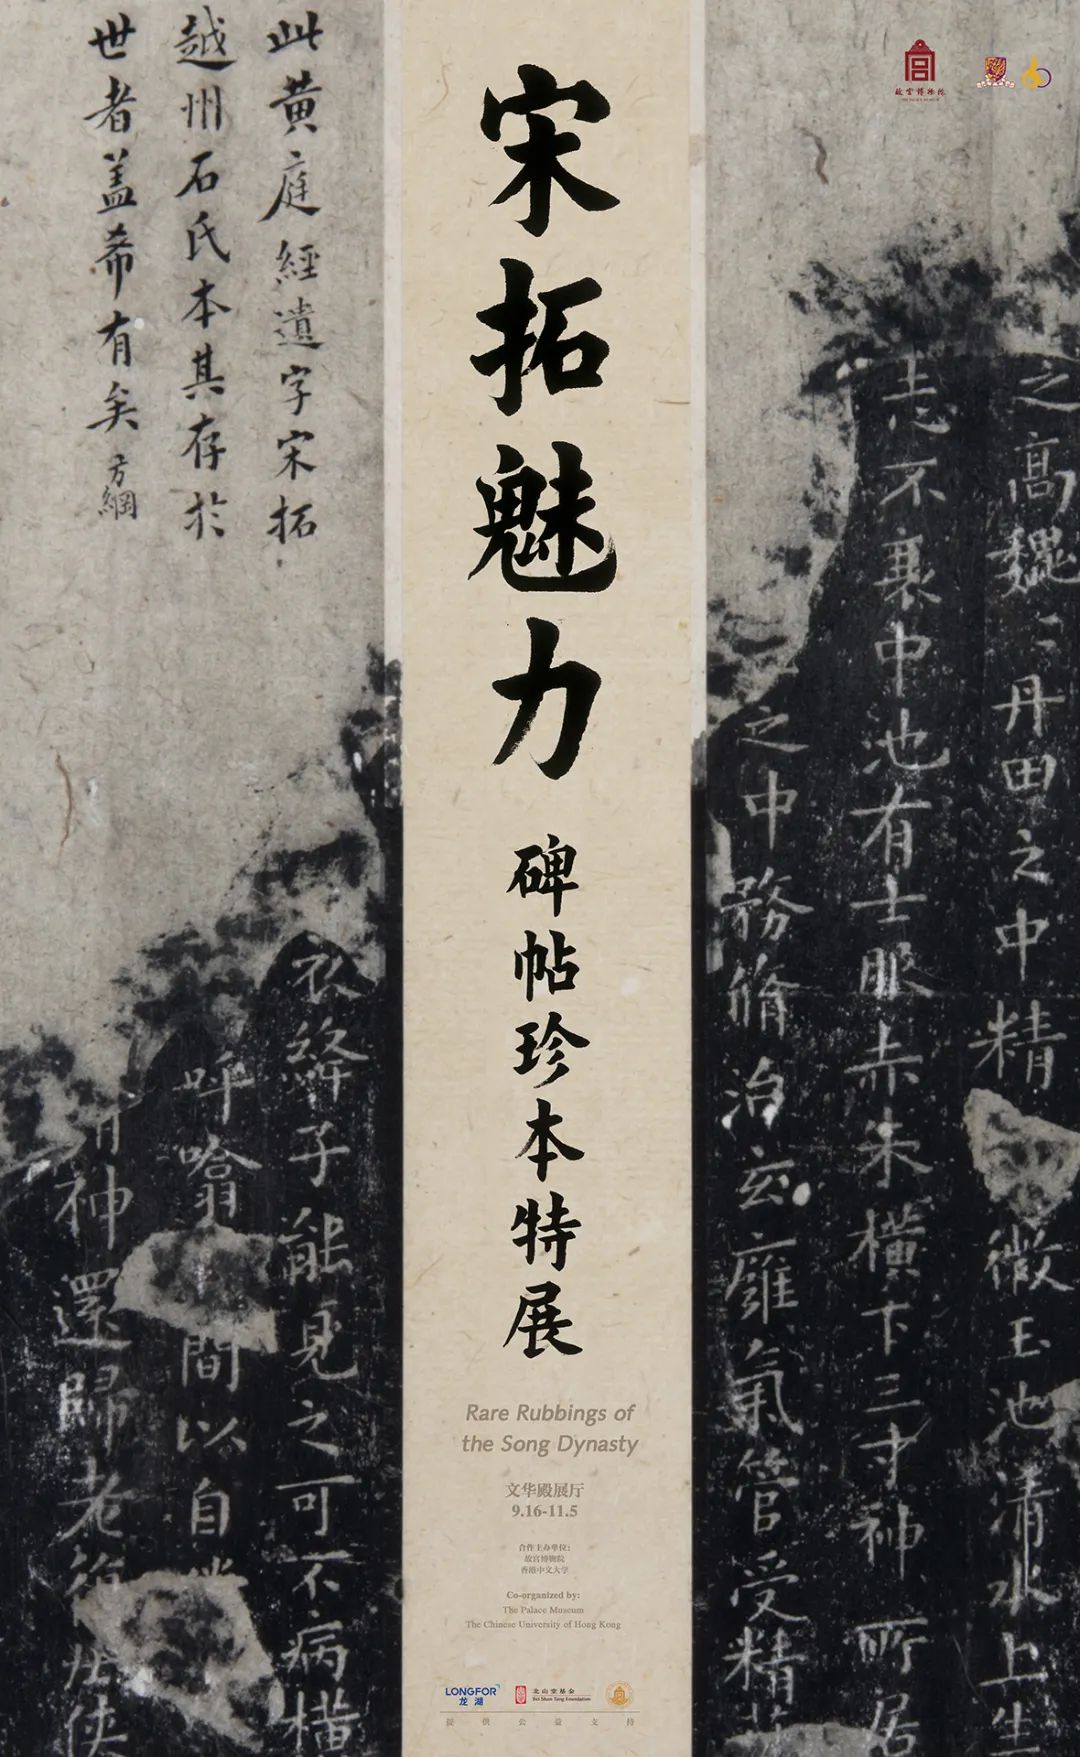 此黄庭經遺字宋拓
越州石氏本其存於
世者盖希有矣 方綱
故宫博物院
THE PALACE MUSEUM
宋拓魅力
碑帖珍本特展
Rare Rubbings of
the Song Dynasty
文华殿展厅
9.16-11.5
合作主办单位:
故宫博物院
香港中文大学
Co-organized by:
The Palace Museum
The Chinese University of Hong Kong
LONGFOR
龙湖
北山堂基金
Bei Shan Tang Foundation
提供公益支持
之高魏〻丹田之中精微玉池清水上生
志不衰中池有士服赤朱橫下三寸神所居
之中務脩治玄廱氣管受精
衣絳子能見之可不病橫
呼噏間以自
神還歸老